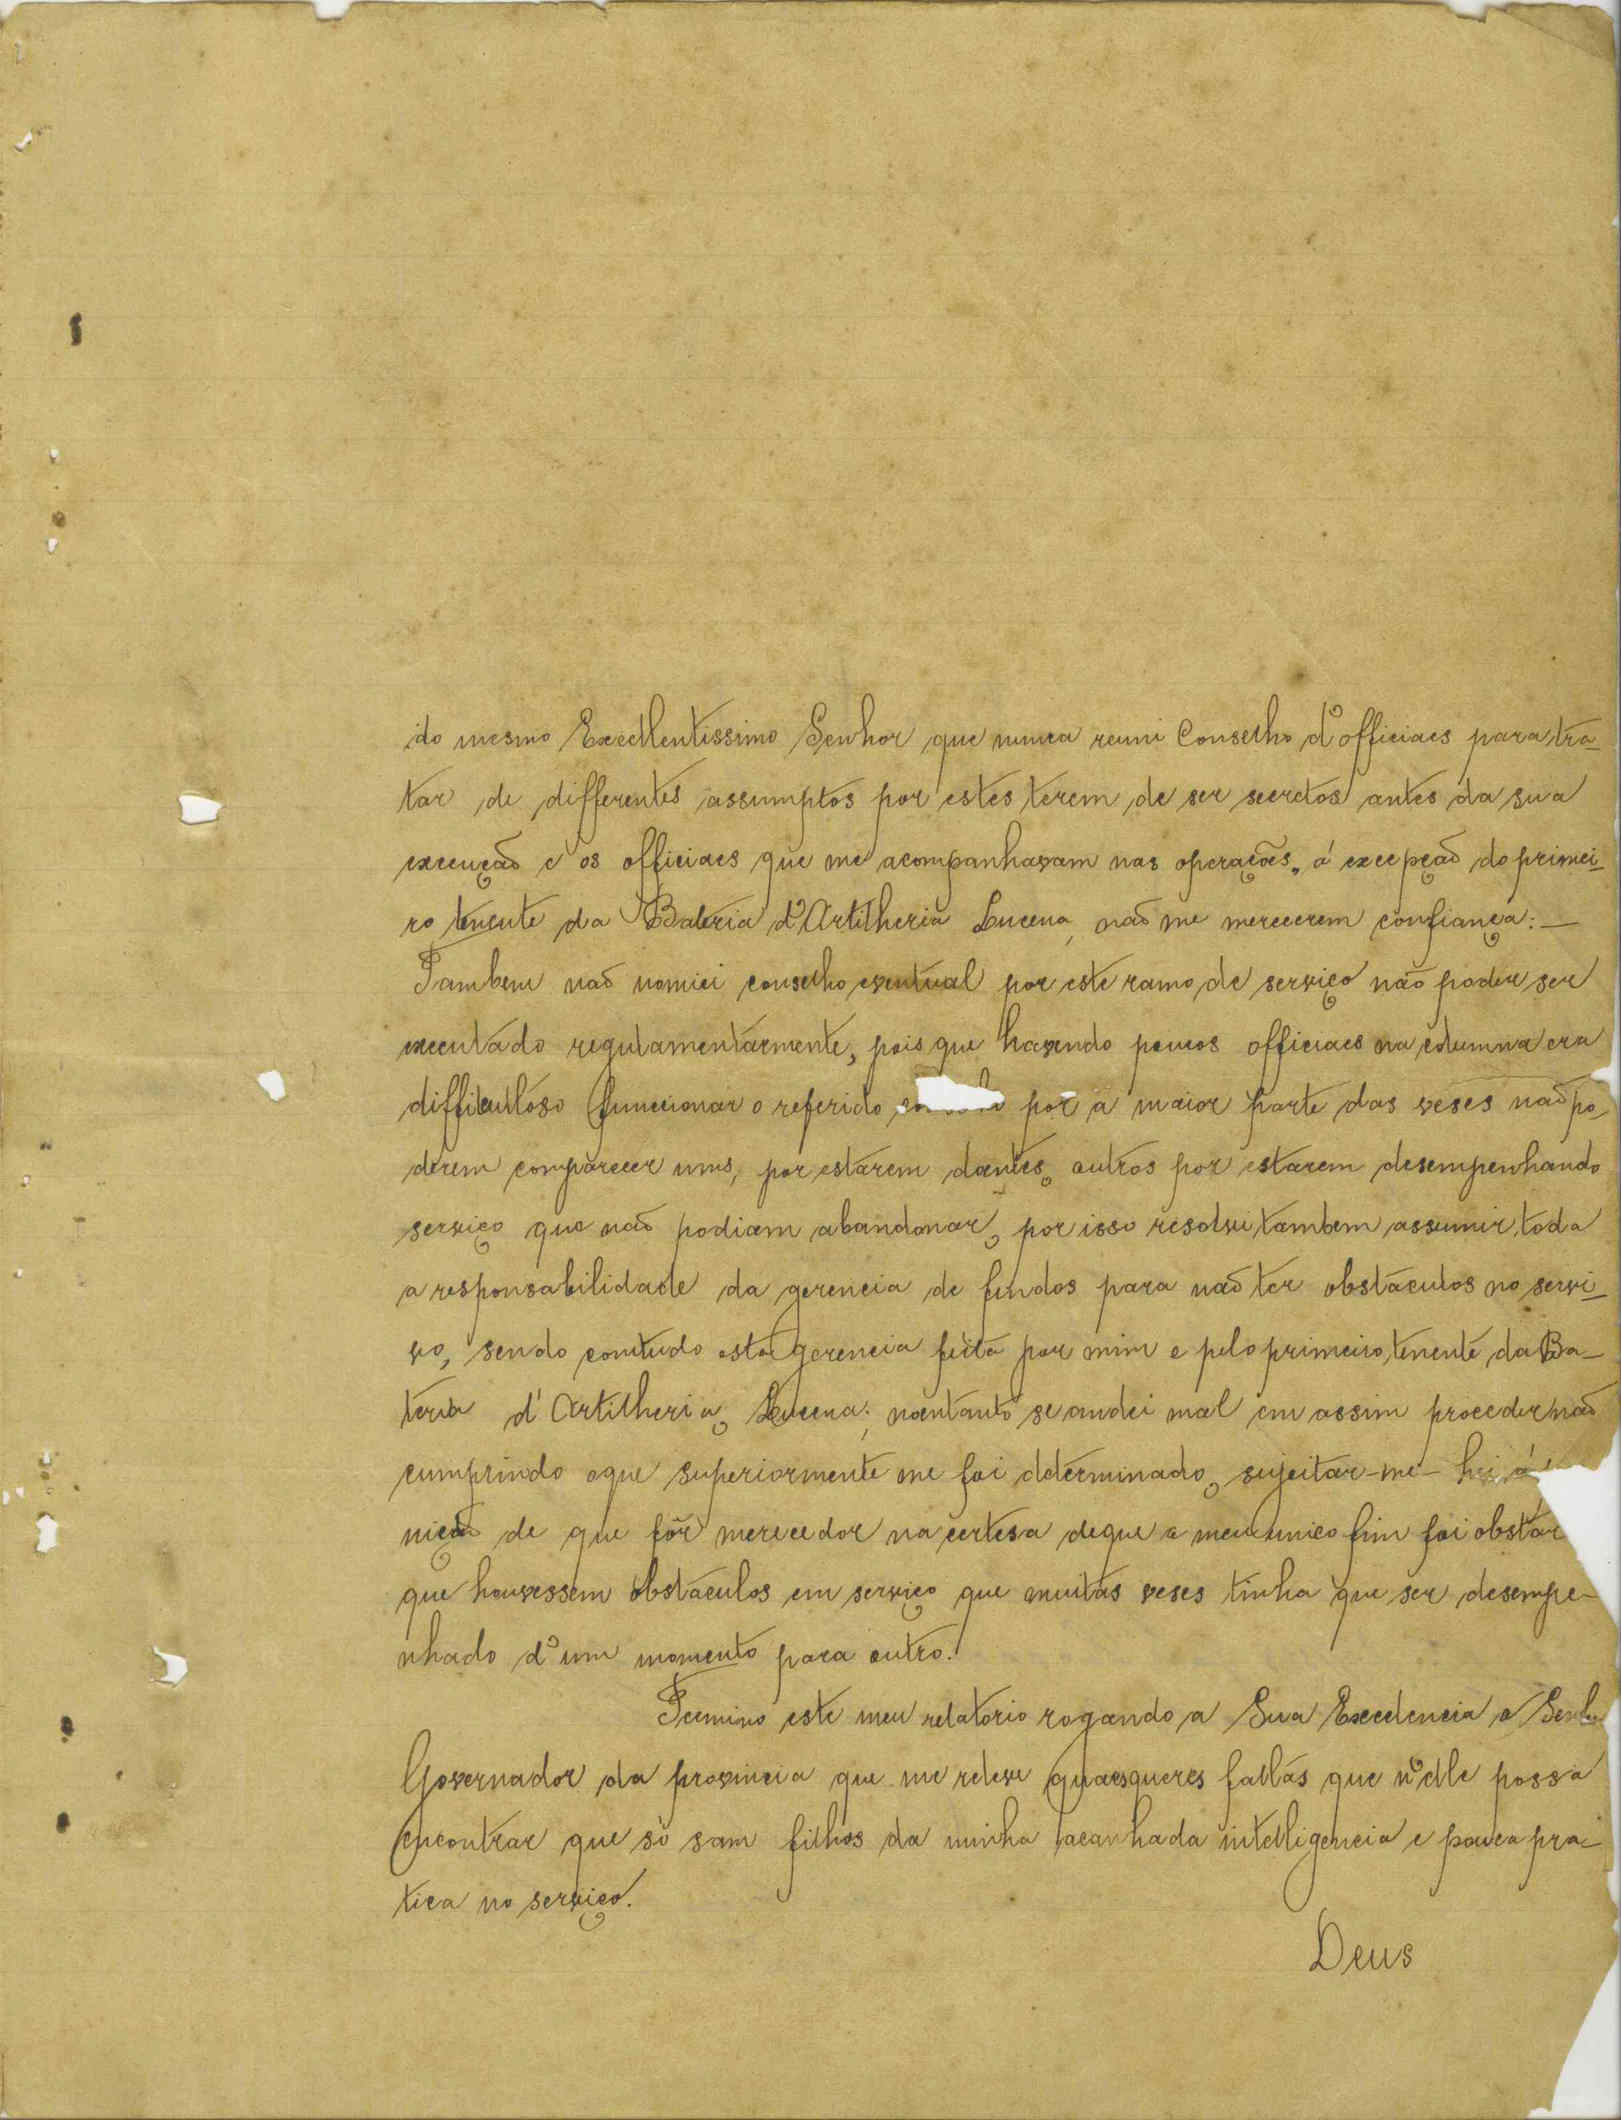 do mesmo Excellentissimo Senhor que nunca reuni Conselho d'officiaes para tra-
tar de differentes assumptos por estes terem de ser secretos antes da sua
execução e os officiaes que me acompanhavam nas operações, á excepção do primei-
ro tenente da Bateria d'Artilheria Lucena, não me merecerem confiança:—
Tambem não nomiei conselho eventual por este ramo de serviço não poder ser
executado regulamentarmente, pois que havendo poucos officiaes na columna era
difficultoso funccionar o referido por a maior parte das veses não po-
derem comparecer uns, por estarem doentes, outros por estarem desempenhando
serviço que não podiam abandonar, por isso resolvi tambem assumir toda
a responsabilidade da gerencia de fundos para não ter obstaculos no servi-
ço, sendo comtudo esta gerencia feita por mim e pelo primeiro tenente da Ba-
teria d'Artilheria, Lucena; no entanto se andei mal em assim proceder não
cumprindo o que superiormente me foi determinado, sujeitar-me-hei á
nição de que fôr merecedor na certesa de que o meu unico fim foi obstar
que houvessem obstaculos em serviço que muitas veses tinha que ser desempe-
nhado d'um momento para outro.
Termino este meu relatorio rogando a Sua Excelencia o
Governador da provincia que me releve quaesqueres faltas que n'elle possa
encontrar que só sam filhos da minha acanhada intelligencia e pouca pra-
tica no serviço.
Deus